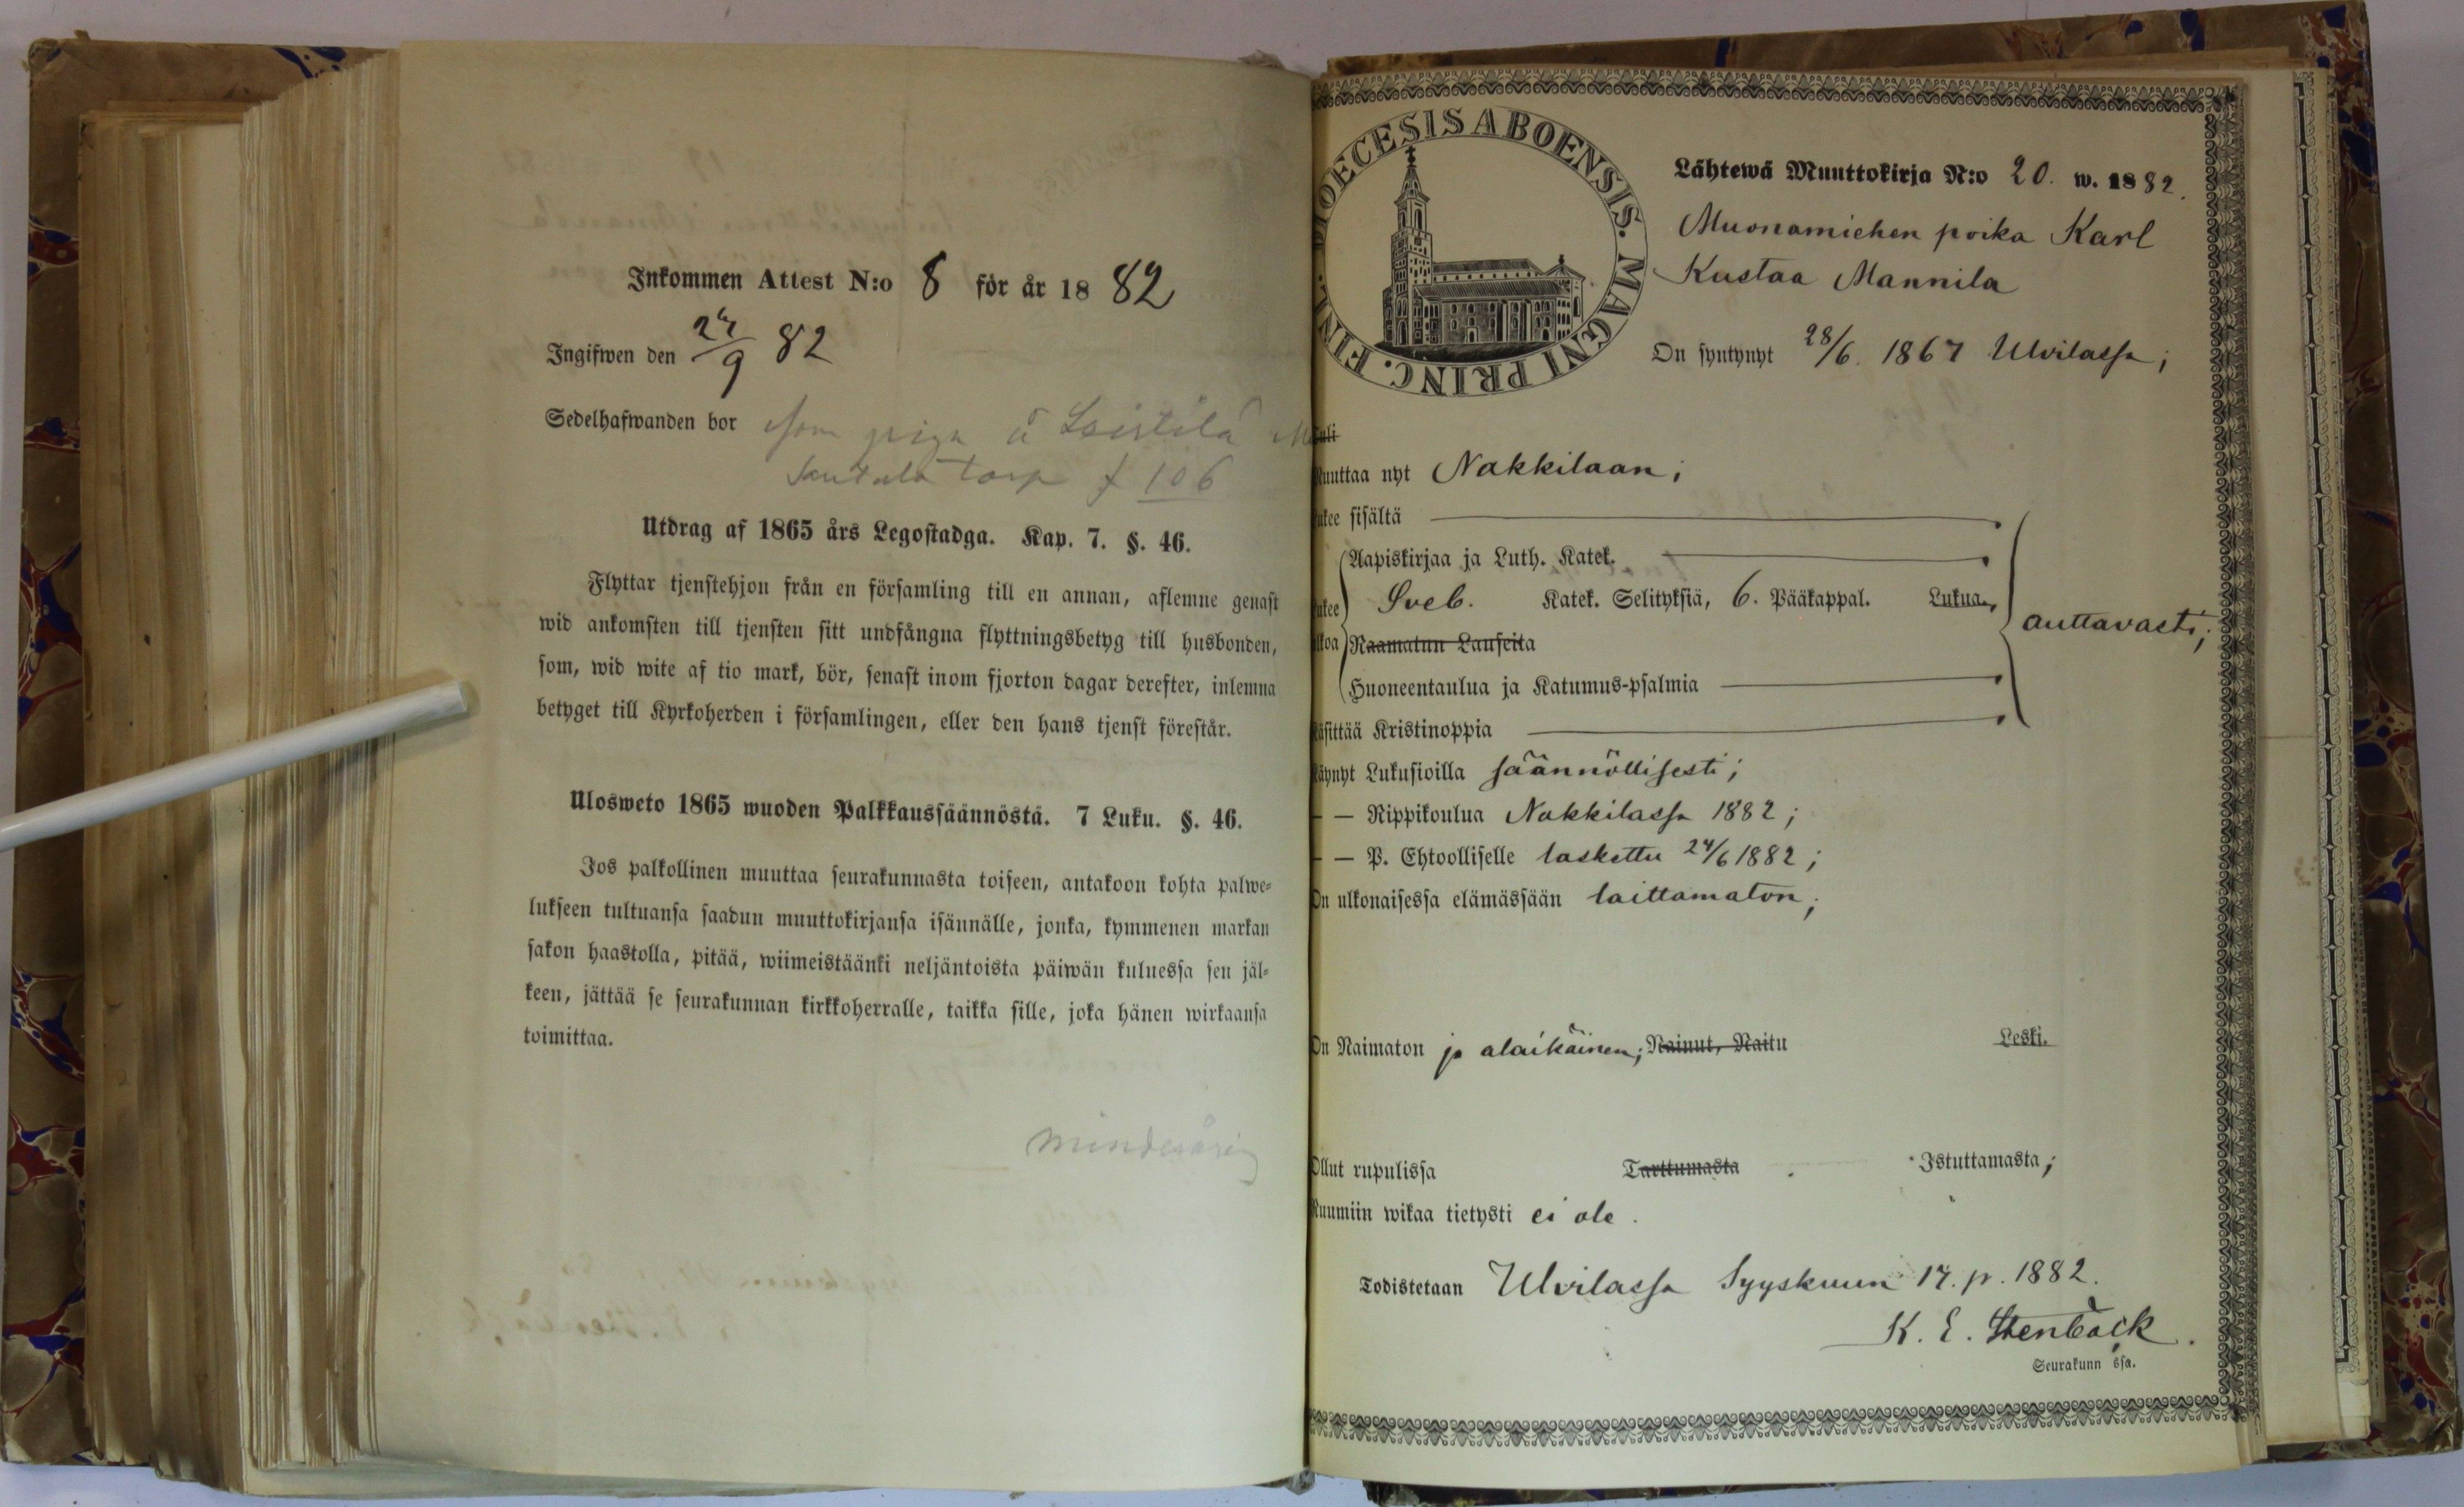 Inkommen Attest N:o 8 för år 1882
Ingifwen den 24/9 82
Sedelhafwanden bor som piga å Leistilä
torp f 106
Utdrag af 1865 års Legostadga. Kap. 7. §. 46.
Flyttar tjenstehjon från en församling till en annan, aflemne genast
wid ankomsten till tjensten sitt undfångna flyttningsbetyg till husbonden,
som, wid wite af tio mark, bör, senast inom fjorton dagar derefter, inlemna
betyget till Kyrkoherden i församlingen, eller den hans tjenst förestår.
Ulosweto 1865 wuoden Palkkaussäännöstä. 7 Luku. §. 46.
Jos palkollinen muuttaa seurakunnasta toiseen, antakoon kohta palwe=
lukseen tultuansa saadun muuttokirjansa isännälle, jonka, kymmenen markan
sakon haastolla, pitää, wiimeistäänki neljäntoista päiwän kuluessa sen jäl=
keen, jättää se seurakunnan kirkkoherralle, taikka sille, joka hänen wirkaansa
toimittaa.
minderårig
DIOECESIS ABOENSIS. MAGNI PRINC. FINL.
Lähtewä Muuttokirja N:o 20. w. 1882.
Muonamiehen poika Karl
Kustaa Mannila
On syntynyt 28/6. 1867 Ulvilassa;
Tuli
Muuttaa nyt Nakkilaan;
Lukee sisältä
Aapiskirjaa ja Luth. Katek.
Lukee Sveb. Katek. Selityksiä, 6. Pääkappal. Lukua. auttavasti;
ulkoa Raamatun Lauseita
Huoneentaulua ja Katumus-psalmia
Käsittää Kristinoppia
Käynyt Lukusioilla säännöllisesti;
— — Rippikoulua Nakkilassa 1882;
— — P. Ehtoolliselle laskettu 24/6 1882;
On ulkonaisessa elämässään laittamaton;
On Naimaton ja alaikäinen; Nainut, Naitu Leski.
Ollut rupulissa Tarttumasta Istuttamasta;
Ruumiin wikaa tietysti ei ole.
Todistetaan Ulvilassa Syyskuun 17. p. 1882.
K. E. Stenbäck.
Seurakunn ssa.